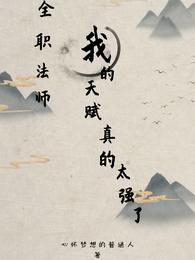 全职法师
我的天赋真的太强了
心怀梦想的普通人
著